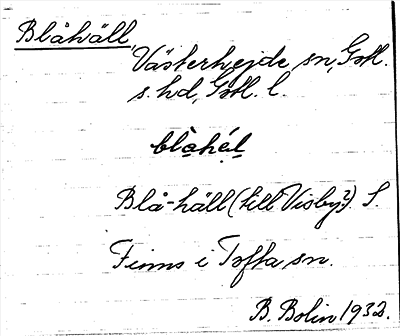 Blåhäll,
Västerhejde sn, Gotl.
s. hd, Gotl. l.
blåhäl
Blå-häll (till Visby?). S.
Finns i Tofta sn.
B. Bolin 1932.